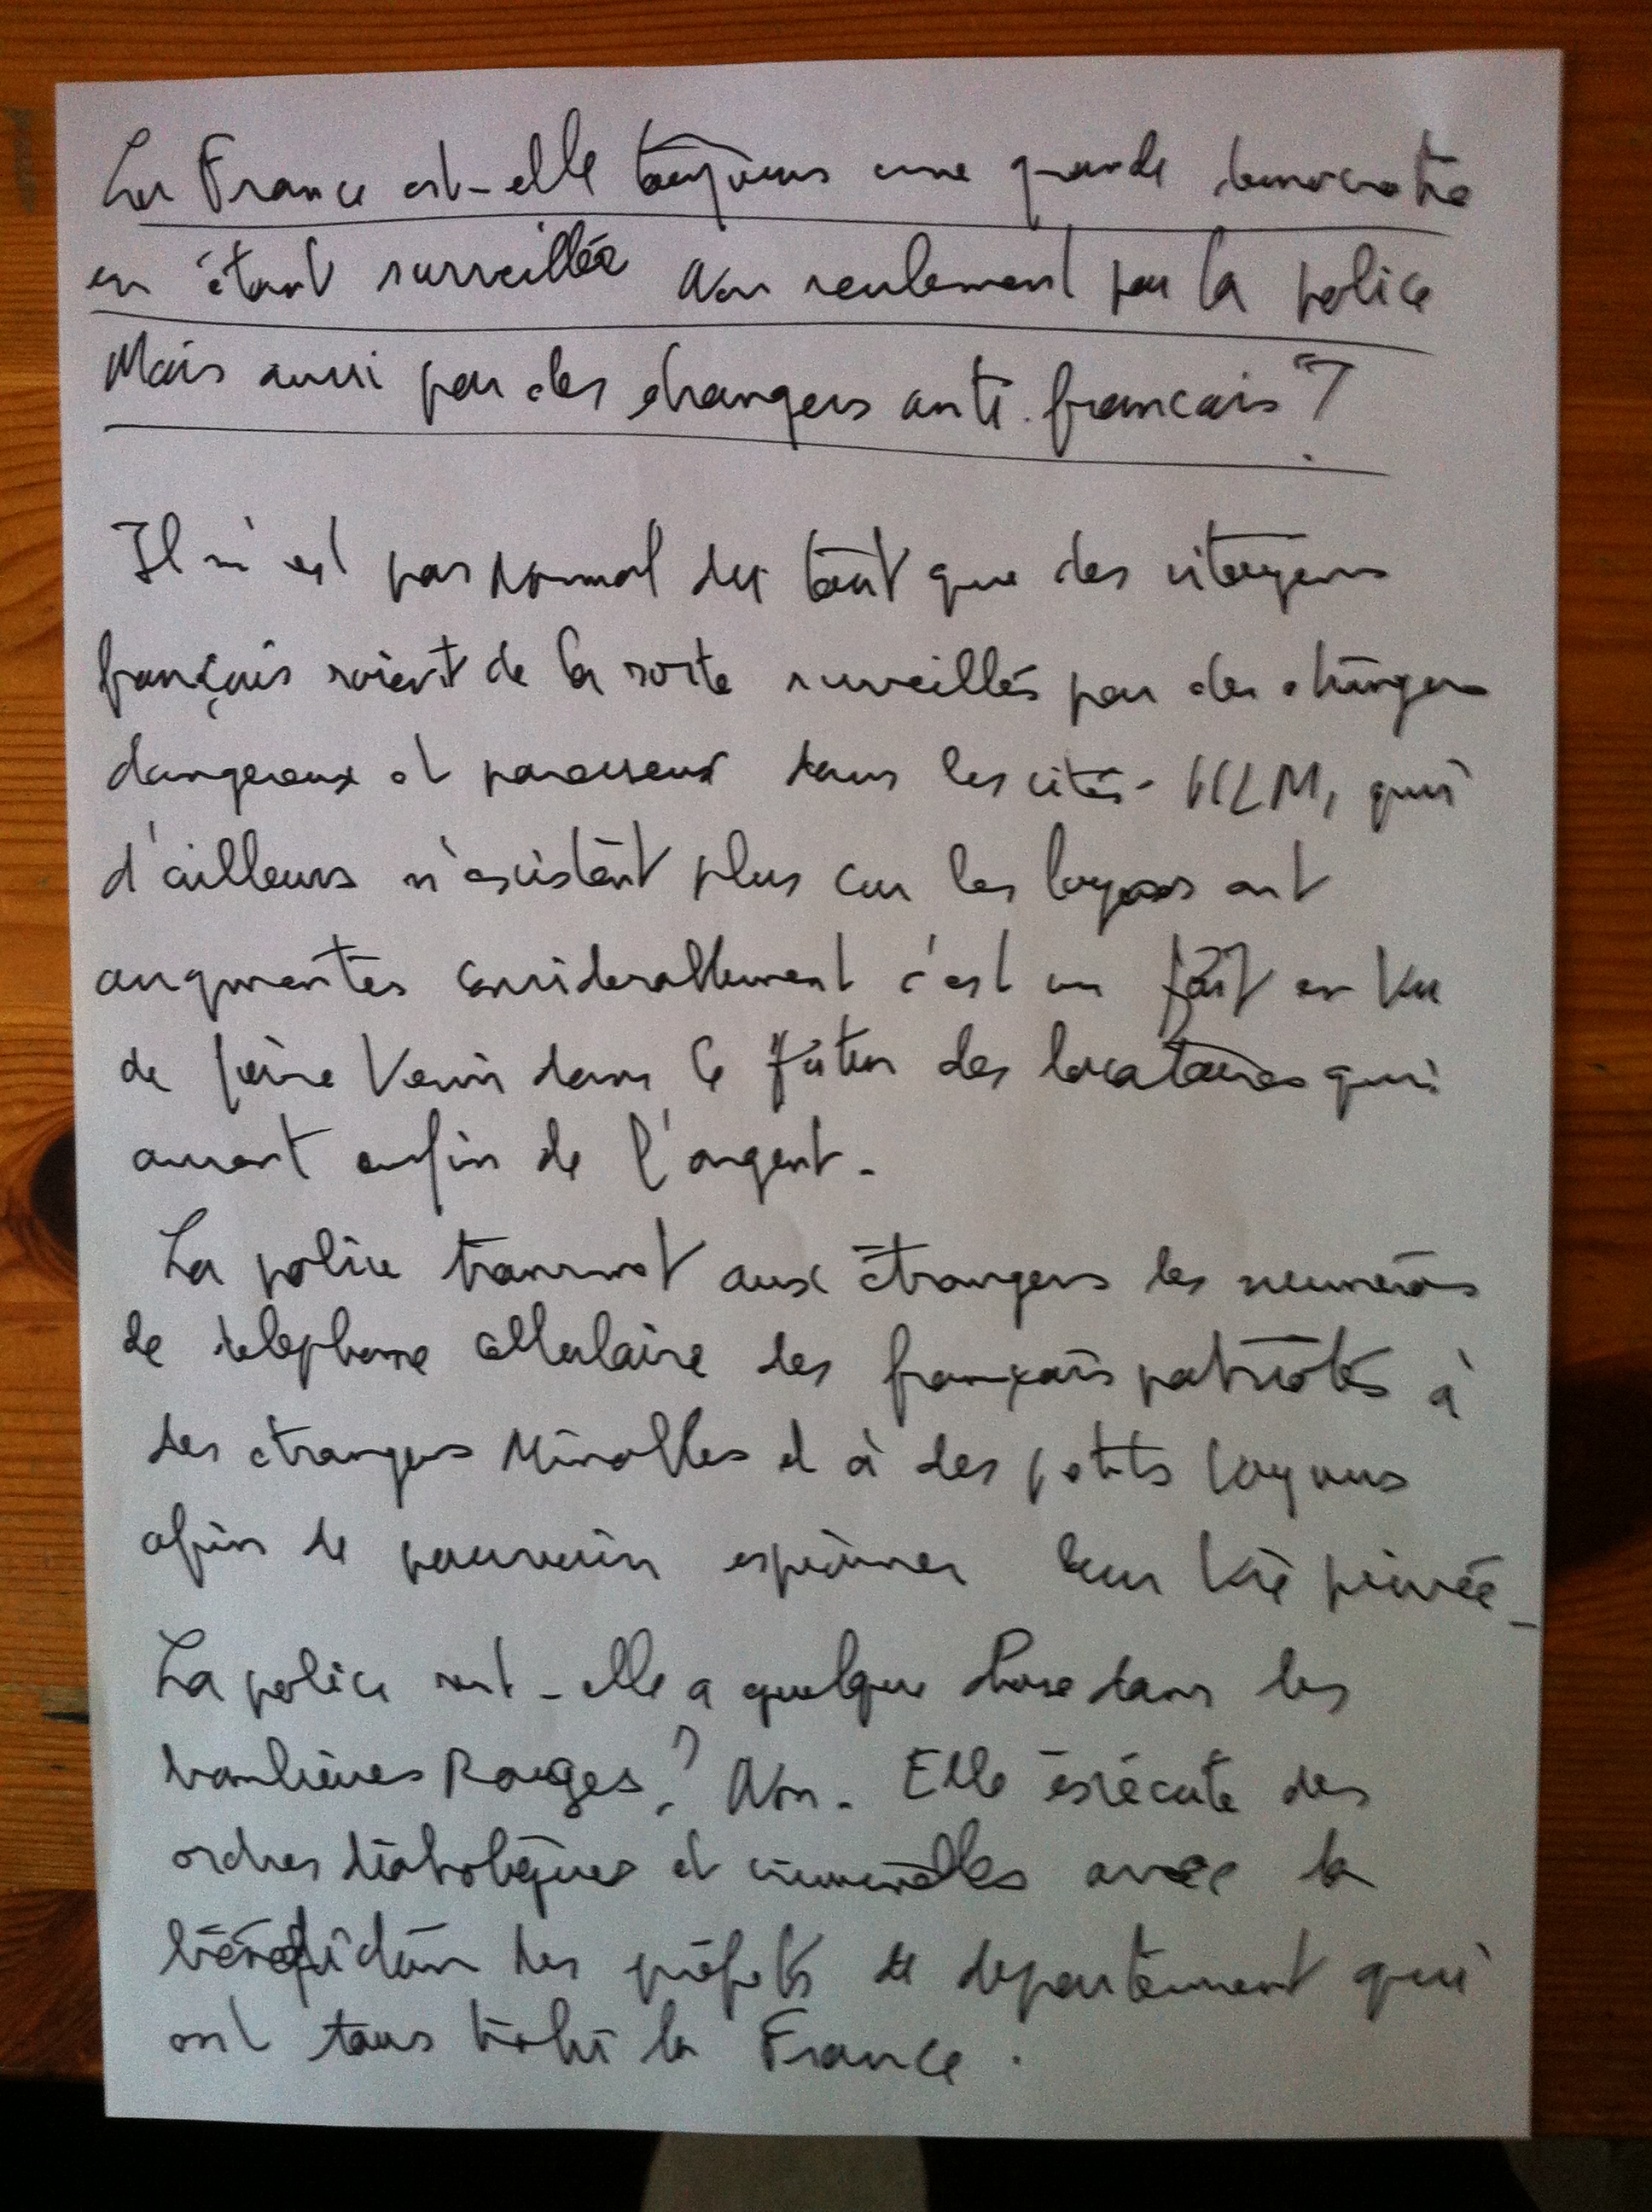 La France est-elle toujours une grande democratie
en étant surveillée Non seulement par la police
Mais aussi par des etrangers anti-francais ?
Il n'est pas normal du tout que des citoyens
français soient de la sorte surveillés par des étrangers
dangereux et paresseux dans les cités - HLM, qui
d'ailleurs n'existent plus car les loyers ont
augmentés considerablement c'est un fait en vu
de faire venir dans le futur des locataires qui
auront enfin de l'argent.
La police transmet aux étrangers les numéros
de telephone cellulaire des français patriotes à
des etrangers Minables et à des petits voyous
afin de pouvoir espionner leur vie privée -
La police sert-elle a quelque chose dans les
banlieues Rouges ? Non. Elle éxécute des
ordres diaboliques et criminelles avec la
bénédiction des préfets de departement qui
ont tous trahi la France.